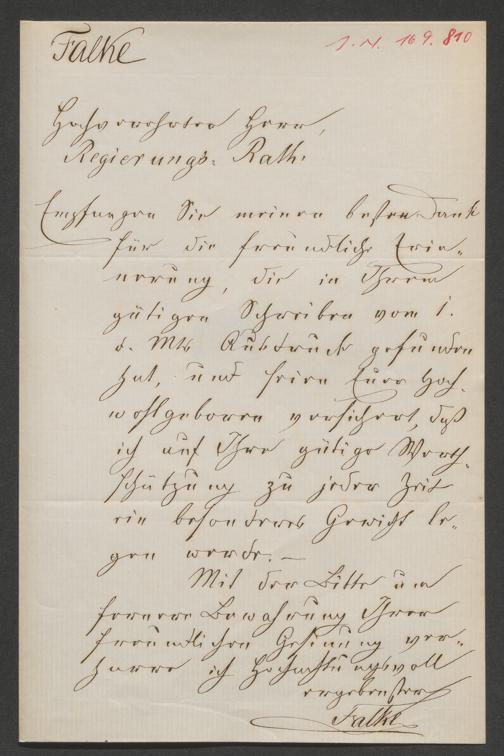 Falke
J. N. 169.810
Hochverehrter Herr,
Regierungs-Rath.
Empfangen Sie meinen besten Dank
für die freundliche Erin-
nerung, die in Ihrem
gütigen Schreiben vom 1.
d. Mts Ausdruck gefunden
hat, und seien Euer Hoch-
wohlgeboren versichert, daß
ich auf Ihre gütige Werth-
schätzung zu jeder Zeit
ein besonderes Gewicht le-
gen werde. —
Mit der Bitte um
fernere Bewahrung Ihrer
freundlichen Gesinnung ver-
harre ich hochachtungsvoll
ergebenster
Falke